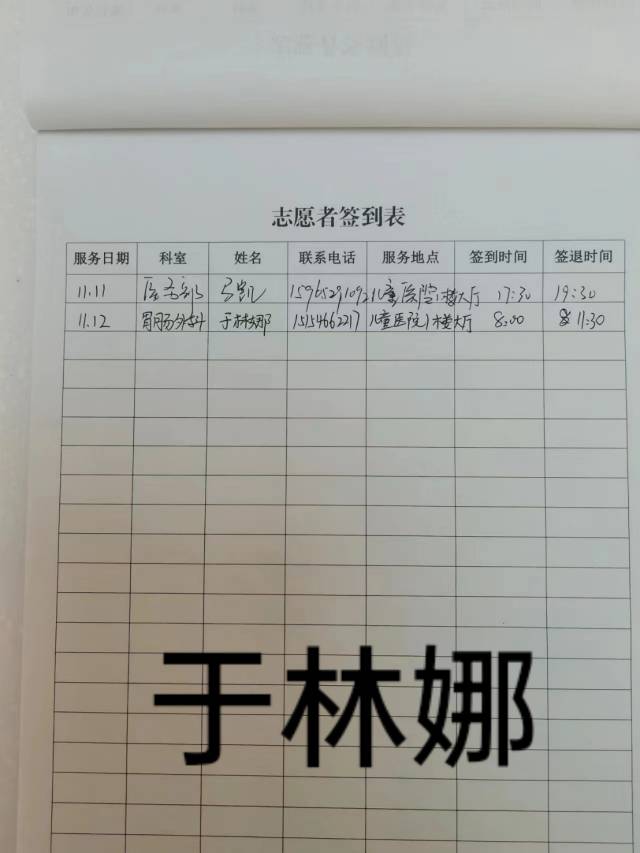 志愿者签到表
服务日期 科室 姓名 联系电话 服务地点 签到时间 签退时间
11.11 医务部 弓凯 15965291092 儿童医院1楼大厅 17:30 19:30
11.12 胃肠外科 于林娜 15154662217 儿童医院1楼大厅 8:00 11:30
于林娜